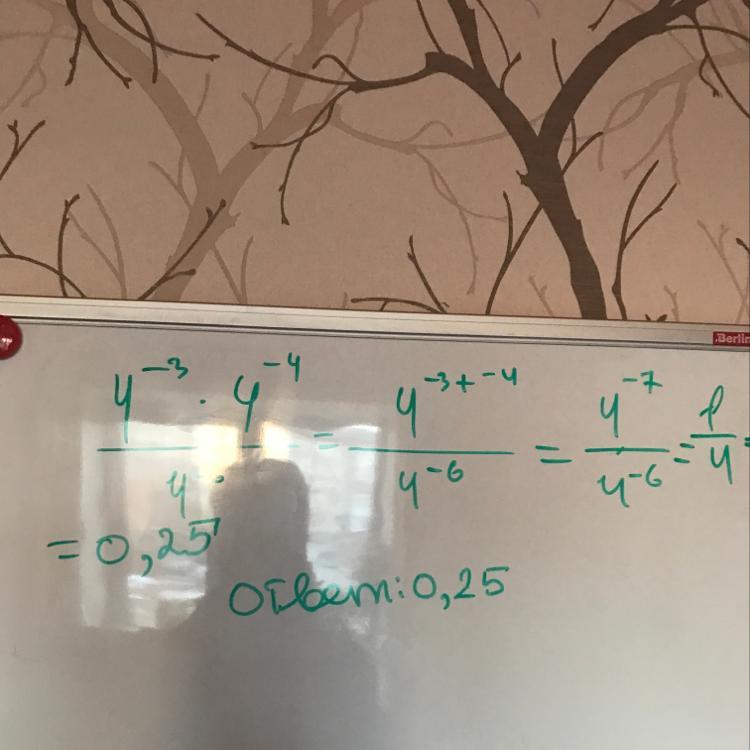 Berlin
4^-3 · 4^-4 / 4^- = 4^-3+-4 / 4^-6 = 4^-7 / 4^-6 = 1/4 =
= 0,25
Ответ: 0,25